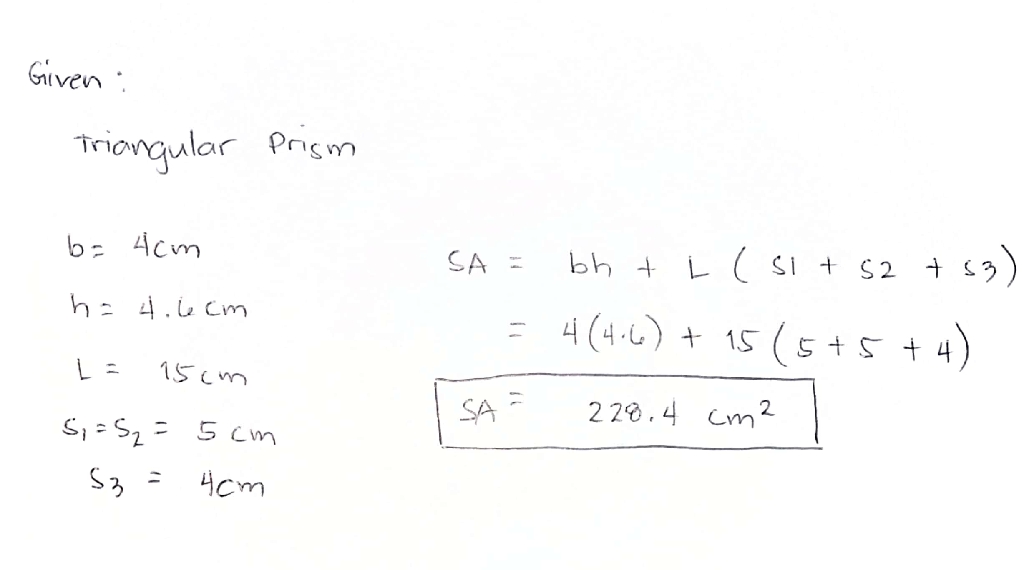 Given :
Triangular Prism
b = 4cm
h = 4.6 cm
L = 15 cm
S₁ = S₂ = 5 cm
S3 = 4cm
SA = bh + L ( S1 + S2 + S3)
= 4(4.6) + 15 (5 + 5 + 4)
SA = 228.4 cm²